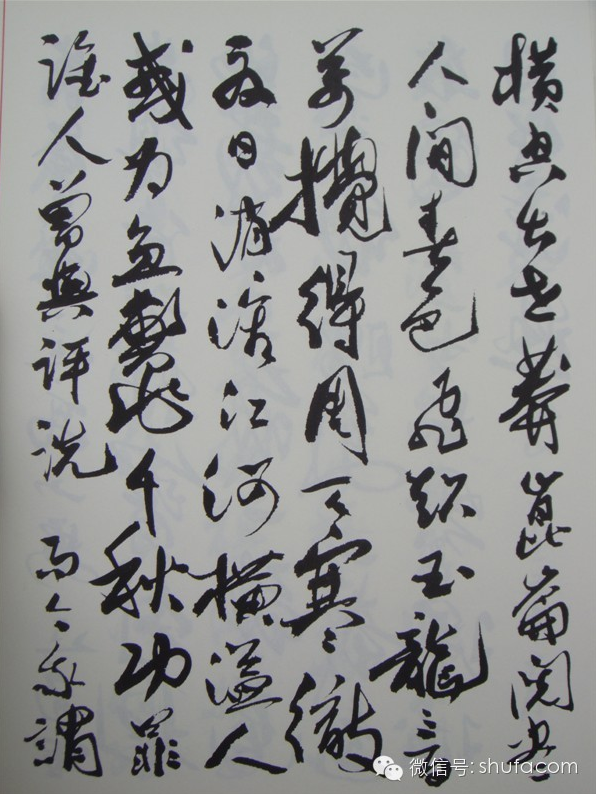 横空出世莽崑崙阅尽
人间春色飛起玉龍三百
萬攪得周天寒徹
夏日消溶江河横溢人
或为鱼鳖千秋功罪
谁人曾與评说 而今我謂
微信号: shufacom